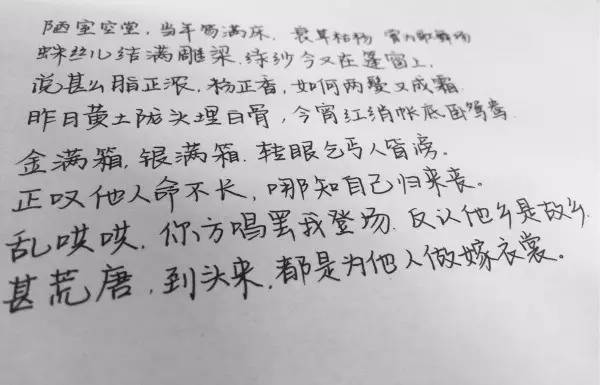 陋室空堂，当年笏满床，衰草枯杨 曾为歌舞场
蛛丝儿结满雕梁，绿纱今又在篷窗上，
说甚么脂正浓，杨正香，如何两鬓又成霜
昨日黄土陇头埋白骨，今宵红消帐底卧鸳鸯
金满箱，银满箱，转眼乞丐人皆谤。
正叹他人命不长，哪知自己归来丧。
乱哄哄，你方唱罢我登场，反认他乡是故乡
甚荒唐，到头来，都是为他人做嫁衣裳。